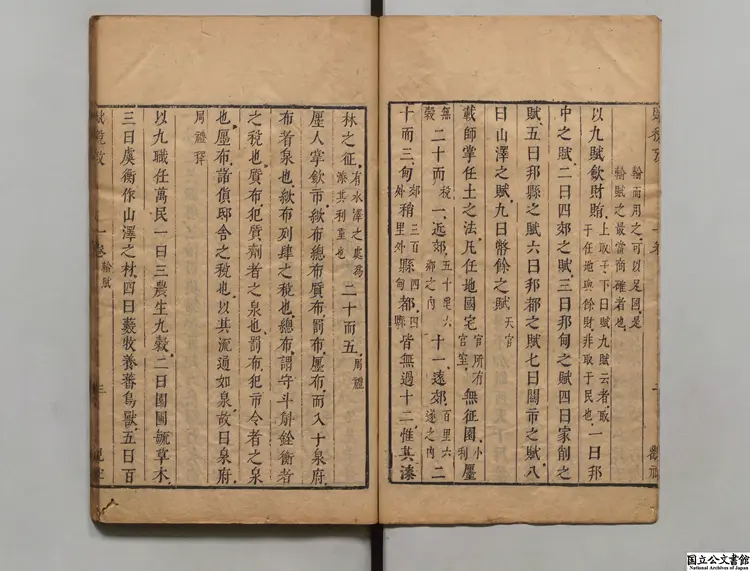 輸而用之可以足國是
輸賦之最當商確者也
以九賦歛財賄上取于下曰賦九賦云者取于任地與餘財非取于民也一曰邦
中之賦二曰四郊之賦三曰邦甸之賦四曰家削之
賦五曰邦縣之賦六曰邦都之賦七曰關市之賦八
曰山澤之賦九曰幣餘之賦天官
載師掌任土之法凡任地國宅官所有官室無征園小利廛
無穀二十而稅一近郊五十里六鄉之內十一遠郊百里六遂之內二
十而三甸郊外稍三百里外縣四甸都四縣皆無過十二惟其漆
林之征有水澤之處爲漆其利重也二十而五周禮
廛人掌歛市絘布總布質布罰布廛布而入于泉府
布者泉也絘布列肆之稅也總布謂守斗斛銓衡者
之稅也質布犯質劑者之泉也罰布犯市令者之泉
也廛布諸貨邸舍之稅也以其流通如泉故曰泉府
周禮釋
以九職任萬民一曰三農生九穀二曰園圃毓草木
三曰虞衡作山澤之材四曰藪牧養蕃鳥獸五曰百
一卷 輸賦 三
国立公文書館
National Archives of Japan